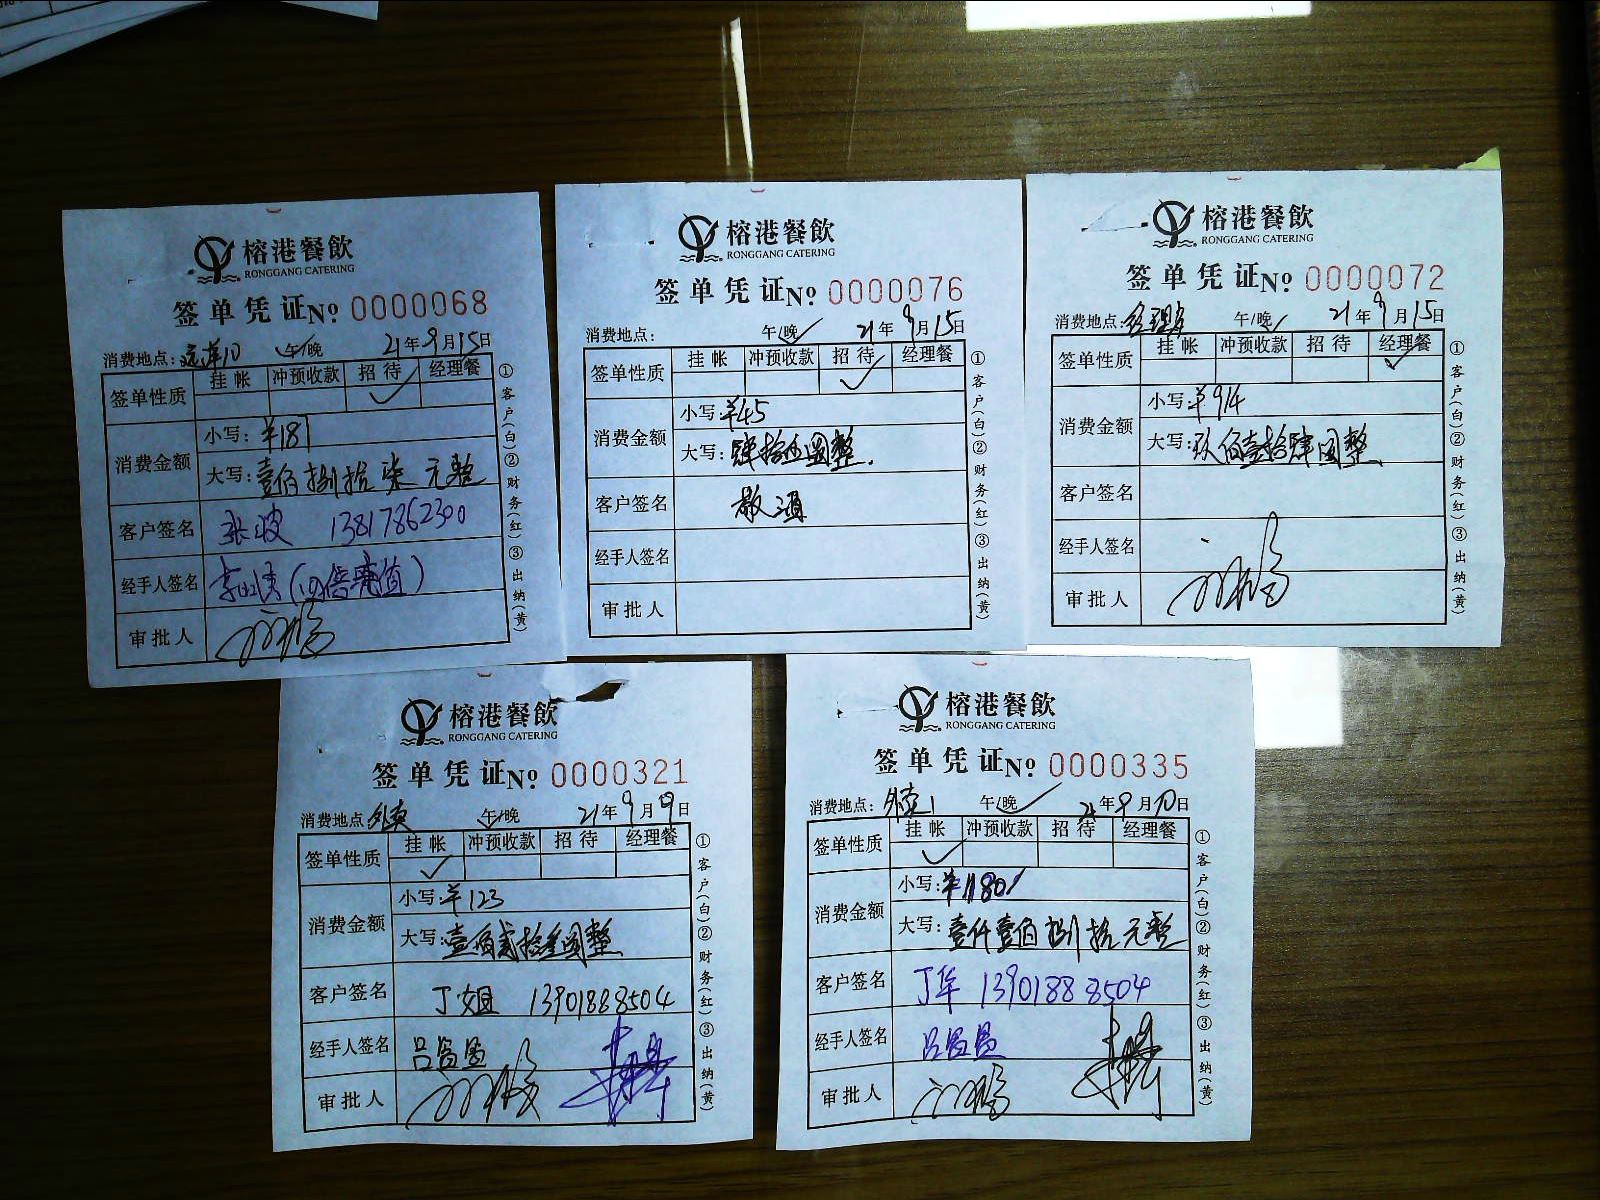 榕港餐飲
RONGGANG CATERING
签单凭证№ 0000068
消费地点：远洋10 午/晚 21年9月15日
签单性质 挂帐 冲预收款 招待 经理餐
消费金额 小写：¥187
大写：壹佰捌拾柒元整
客户签名 张波 13817862300
经手人签名
审批人
①客户(白)②财务(红)③出纳(黄)
榕港餐飲
RONGGANG CATERING
签单凭证№ 0000076
消费地点： 午/晚 21年9月15日
签单性质 挂帐 冲预收款 招待 经理餐
消费金额 小写：¥45
大写：肆拾伍圆整
客户签名 散酒
经手人签名
审批人
①客户(白)②财务(红)③出纳(黄)
榕港餐飲
RONGGANG CATERING
签单凭证№ 0000072
消费地点：经理房 午/晚 21年9月15日
签单性质 挂帐 冲预收款 招待 经理餐
消费金额 小写：¥914
大写：玖佰壹拾肆圆整
客户签名
经手人签名
审批人
①客户(白)②财务(红)③出纳(黄)
榕港餐飲
RONGGANG CATERING
签单凭证№ 0000321
消费地点：外卖 午/晚 21年9月9日
签单性质 挂帐 冲预收款 招待 经理餐
消费金额 小写：¥123
大写：壹佰贰拾叁圆整
客户签名 丁姐 13901888504
经手人签名
审批人
①客户(白)②财务(红)③出纳(黄)
榕港餐飲
RONGGANG CATERING
签单凭证№ 0000335
消费地点：外卖1 午/晚 21年9月10日
签单性质 挂帐 冲预收款 招待 经理餐
消费金额 小写：¥1180
大写：壹仟壹佰捌拾元整
客户签名 丁华 13901888504
经手人签名
审批人
①客户(白)②财务(红)③出纳(黄)